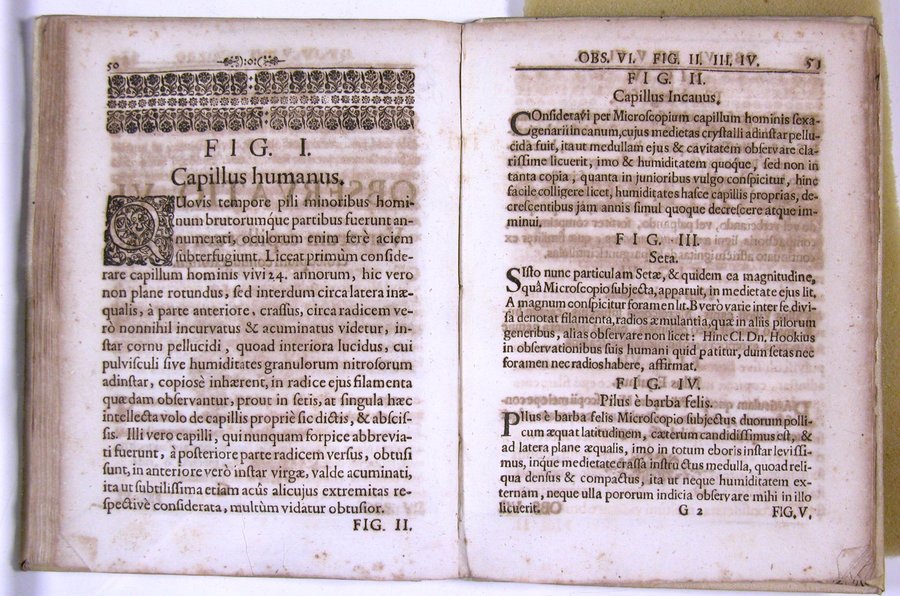 50
FIG. I.
Capillus humanus.
QUovis tempore pili minoribus homi-
num brutorumq́ue partibus fuerunt an-
numerati, oculorum enim ferè aciem
subterfugiunt. Liceat primùm conside-
rare capillum hominis vivi 24. annorum, hic vero
non plane rotundus, sed interdum circa latera inæ-
qualis, à parte anteriore, crassus, circa radicem ve-
rò nonnihil incurvatus & acuminatus videtur, in-
star cornu pellucidi, quoad interiora lucidus, cui
pulvisculi sive humiditates granulorum nitrosorum
adinstar, copiosè inhærent, in radice ejus filamenta
quædam observantur, prout in setis, at singula hæc
intellecta volo de capillis propriè sic dictis, & abscis-
sis. Illi vero capilli, qui nunquam forpice abbrevia-
ti fuerunt, à posteriore parte radicem versus, obtusi
sunt, in anteriore verò instar virgæ, valde acuminati,
ita ut subtilissima etiam acûs alicujus extremitas re-
spectivè considerata, multùm vidatur obtusior.
FIG. II.
OBS. VI. FIG. II. III. IV. 51
FIG. II.
Capillus Incanus.
COnsideravi per Microscopium capillum hominis sexa-
genarii incanum, cujus medietas crystalli adinstar pellu-
cida fuit, ita ut medullam ejus & cavitatem observare cla-
rissime licuerit, imo & humiditatem quoq́ue, sed non in
tanta copia, quanta in junioribus vulgo conspicitur, hinc
facile colligere licet, humiditates hasce capillis proprias, de-
crescentibus jam annis simul quoque decrescere atque im-
minui.
FIG. III.
Seta.
SIsto nunc particulam Setæ, & quidem ea magnitudine,
quâ Microscopio subjecta, apparuit, in medietate ejus lit.
A magnum conspicitur foramen lit. B verò varie inter se divi-
sa denotat filamenta, radios æmulantia, quæ in aliis pilorum
generibus, alias observare non licet: Hinc Cl. Dn. Hookius
in observationibus suis humani quid patitur, dum setas nec
foramen nec radios habere, affirmat.
FIG. IV.
Pilus è barba felis.
PIlus è barba felis Microscopio subjectus duorum polli-
cum æquat latitudinem, cæterum candidissimus est, &
ad latera plane æqualis, imo in totum eboris instar levissi-
mus, inque medietate crassâ instructus medulla, quoad reli-
qua densus & compactus, ita ut neque humiditatem ex-
ternam, neque ulla pororum indicia observare mihi in illo
licuerit.
G 2 FIG. V.